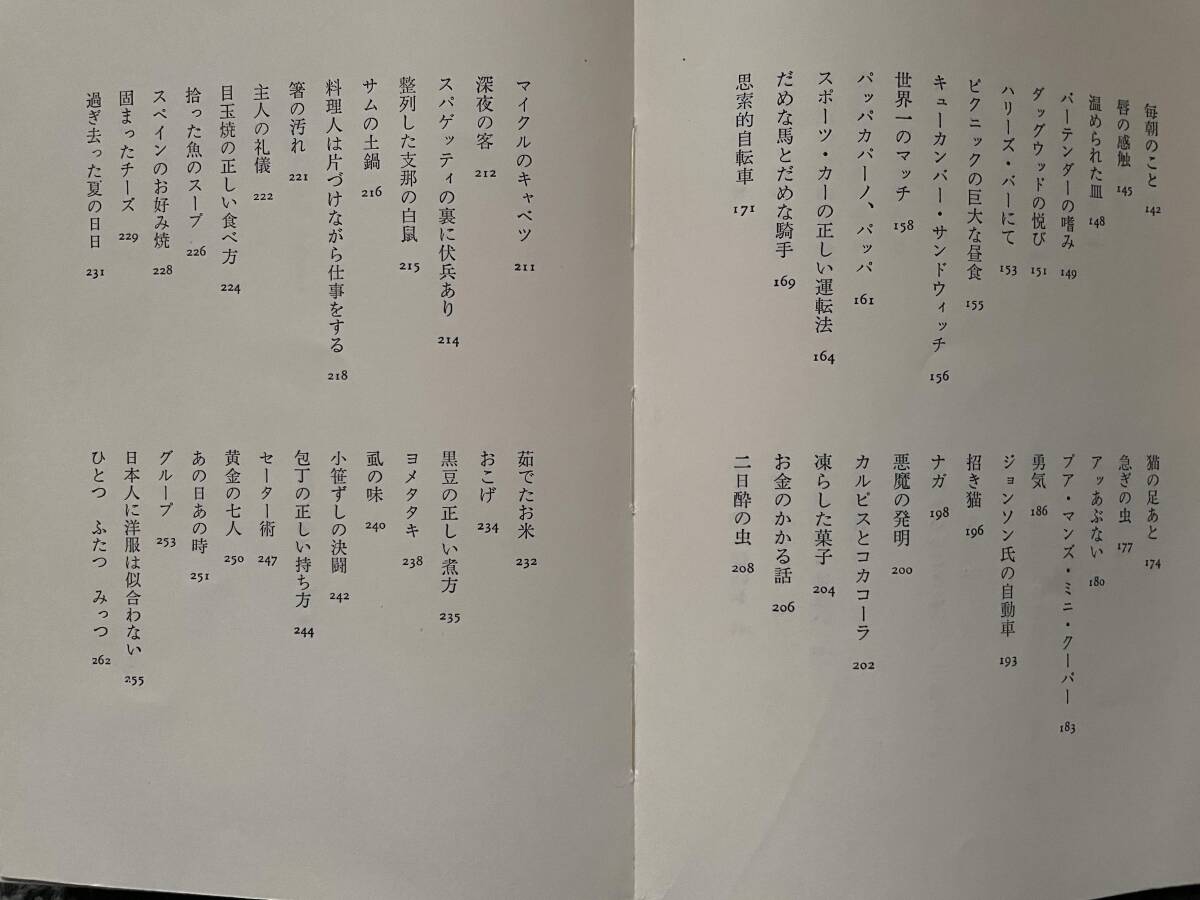 毎朝のこと 142
唇の感触 145
温められた皿 148
バーテンダーの嗜み 149
ダッグウッドの悦び 151
ハリーズ・バーにて 153
ピクニックの巨大な昼食 155
キューカンバー・サンドウィッチ 156
世界一のマッチ 158
パッパカパーノ、パッパ 161
スポーツ・カーの正しい運転法 164
だめな馬とだめな騎手 169
思索的自転車 171
猫の足あと 174
急ぎの虫 177
アッあぶない 180
プア・マンズ・ミニ・クーパー 183
勇気 186
ジョンソン氏の自動車 193
招き猫 196
ナガ 198
悪魔の発明 200
カルピスとコカコーラ 202
凍らした菓子 204
お金のかかる話 206
二日酔の虫 208
マイクルのキャベツ 211
深夜の客 212
スパゲッティの裏に伏兵あり 214
整列した支那の白鼠 215
サムの土鍋 216
料理人は片づけながら仕事をする 218
箸の汚れ 221
主人の礼儀 222
目玉焼の正しい食べ方 224
拾った魚のスープ 226
スペインのお好み焼 228
固まったチーズ 229
過ぎ去った夏の日日 231
茹でたお米 232
おこげ 234
黒豆の正しい煮方 235
ヨメタタキ 238
虱の味 240
小笹ずしの決闘 242
包丁の正しい持ち方 244
セーター術 247
黄金の七人 250
あの日あの時 251
グループ 253
日本人に洋服は似合わない 255
ひとつ ふたつ みっつ 262